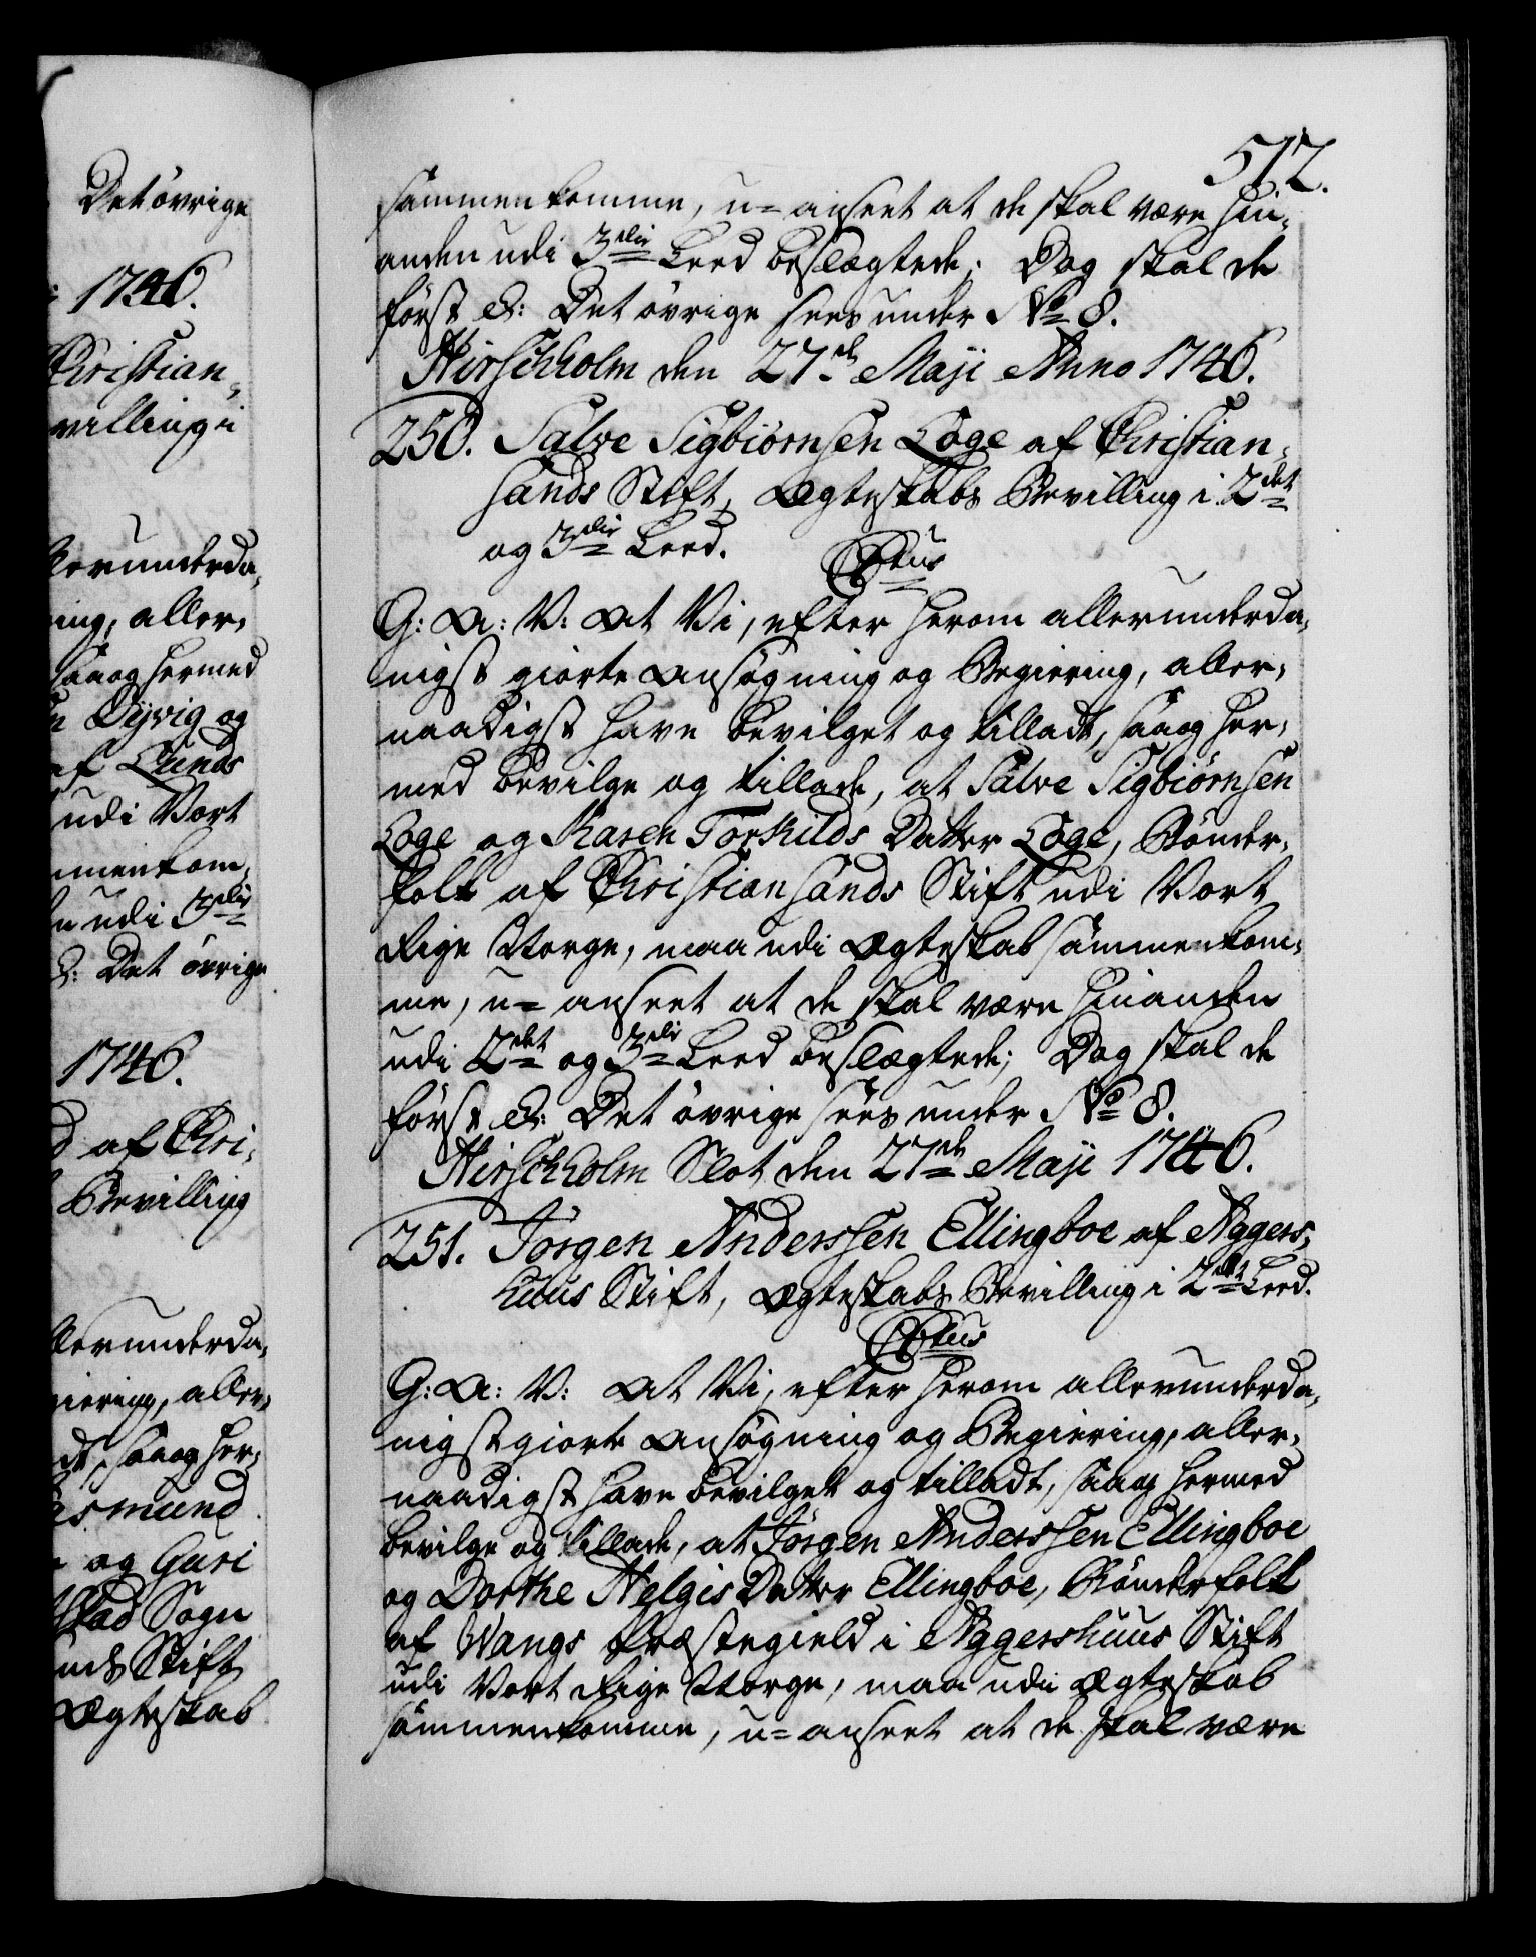 Det övrige
1746.
Christian-
villing i
allerunderda-
ring, aller-
saa og hermed
Dyvig og
af Lunds
udi Vort
mmenkom-
n udi 3die
&: Det övrige
1746.
af Chri-
Bevilling
allerunderda-
giering, aller-
dt, saa og her-
Asmund
og Guri
stad Sogn
nds Stift
Ægteskab
512.
sammenkomme, u= anseet at de skal være hin-
anden udi 3die Leed beslægtede; Dog skal de
först &: Det övrige sees under No 8.
Hirschholm den 27de Maji Anno 1746.
250. Salve Sigbiörnsen Loge af Christian-
sands Stift, Ægteskabs Bevilling i 2det
og 3die Leed.
C6tus
G: A: V: At Vi, efter herom allerunderda-
nigst giorte Ansögning og Begiering, aller-
naadigst have bevilget og tilladt, saa og her-
med bevilge og tillade, at Salve Sigbiörnsen
Loge og Karen Torkilds Datter Loge, Bönder-
folk af Christiansands Stift udi Vort
Rige Norge, maa udi Ægteskab sammenkom-
me, u= anseet at de skal være hinanden
udi 2det og 3die Leed beslægtede; Dog skal de
först &: Det övrige sees under No 8.
Hirschholm Slot den 27de Maji 1746.
251. Jörgen Anderssen Ellingboe af Aggers-
huus Stift, Ægteskabs Bevilling i 2det Leed.
C6tus
G: A: V: At Vi, efter herom allerunderda-
nigst giorte Ansögning og Begiering, aller-
naadigst have bevilget og tilladt, saa og hermed
bevilge og tillade, at Jörgen Anderssen Ellingboe
og Dorthe Helgis Datter Ellingboe, Bönderfolk
af Wangs Præstegield i Aggershuus Stift
udi Vort Rige Norge, maa udi Ægteskab
sammenkomme, u= anseet at de skal være